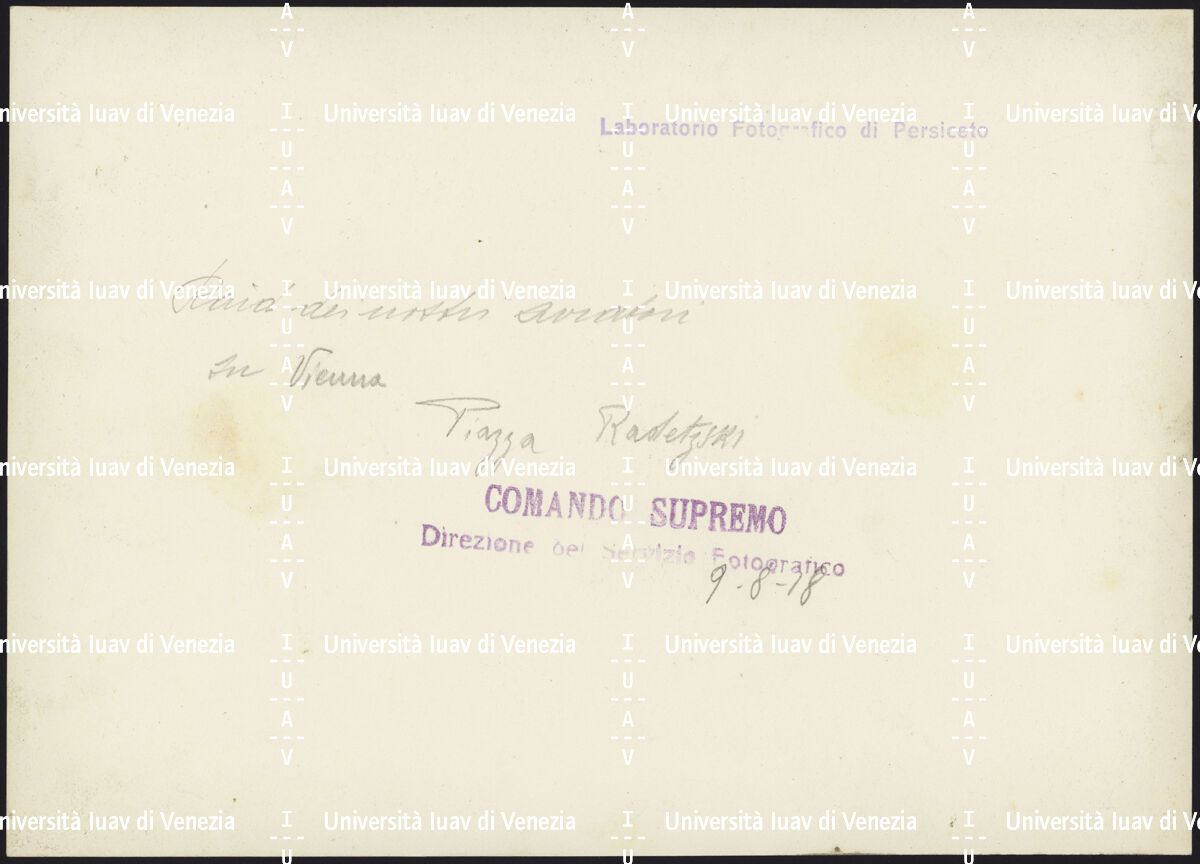 Laboratorio Fotografico di Persiceto
Raid dei nostri aviatori
su Vienna
Piazza Radetzski
COMANDO SUPREMO
Direzione del Servizio Fotografico
9-8-18
Università Iuav di Venezia
I U A V